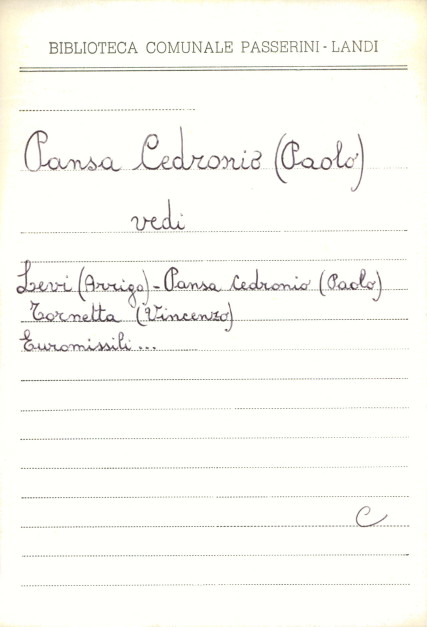 BIBLIOTECA COMUNALE PASSERINI - LANDI
Pansa Cedronio (Paolo)
vedi
Levi (Arrigo) - Pansa Cedronio (Paolo)
Tornetta (Vincenzo)
Euromissili ...
C